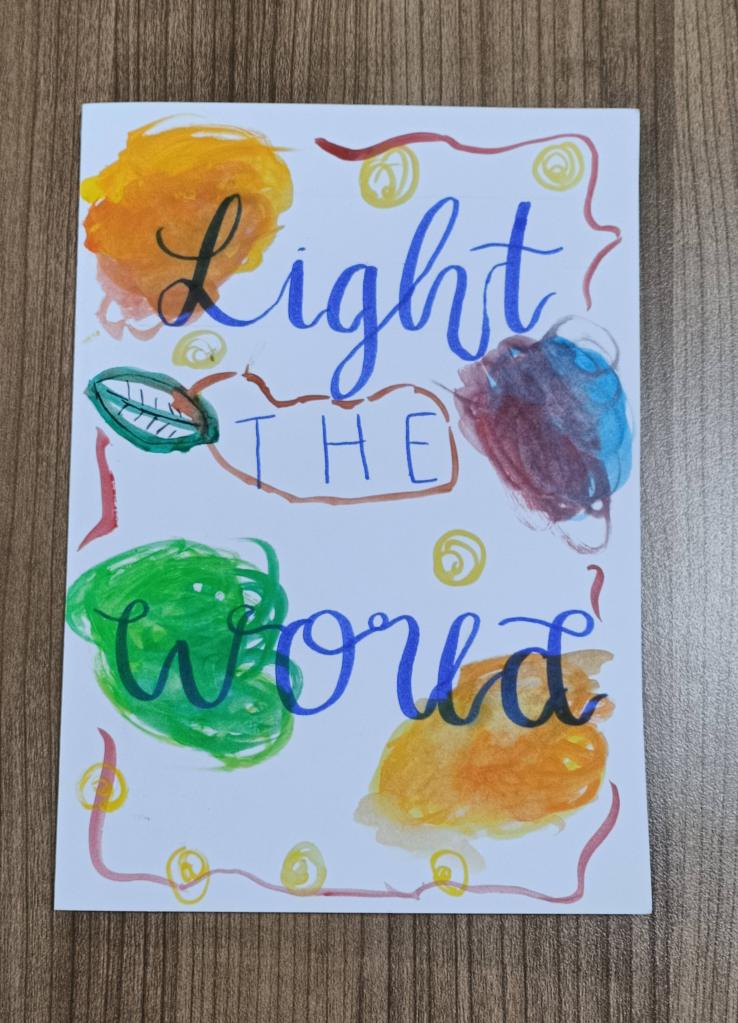 Light
THE
World